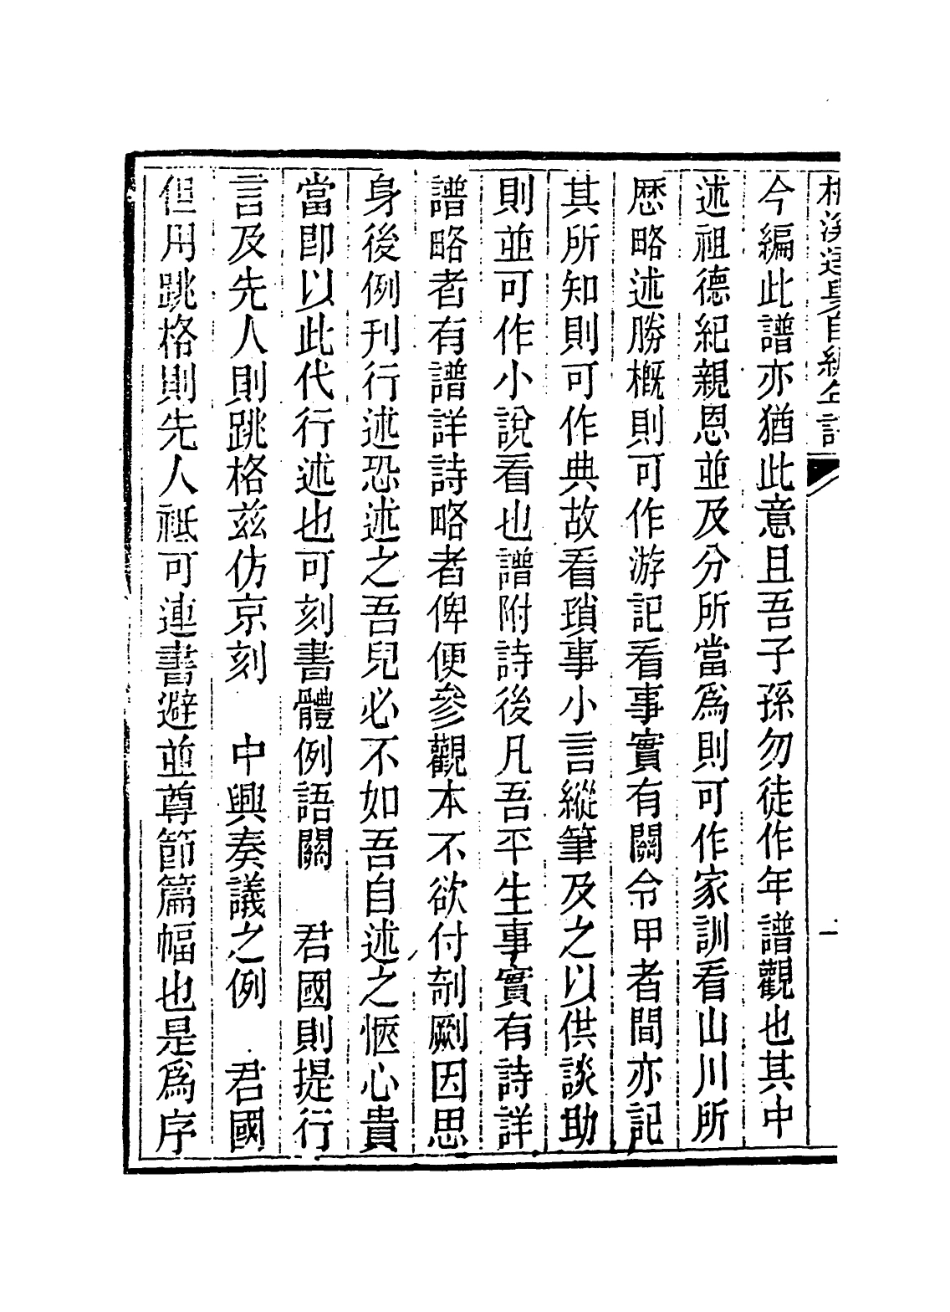 今編此譜亦猶此意且吾子孫勿徒作年譜觀也其中
述祖德紀親恩並及分所當爲則可作家訓看山川所
歷略述勝概則可作游記看事實有關令甲者間亦記
其所知則可作典故看瑣事小言縱筆及之以供談助
則並可作小說看也譜附詩後凡吾平生事實有詩詳
譜略者有譜詳詩略者俾便參觀本不欲付剞劂因思
身後例刊行述恐述之吾兒必不如吾自述之愜心貴
當卽以此代行述也可刻書體例語關　君國則提行
言及先人則跳格茲仿京刻　中興奏議之例　君國
但用跳格則先人祗可連書避並尊節篇幅也是爲序